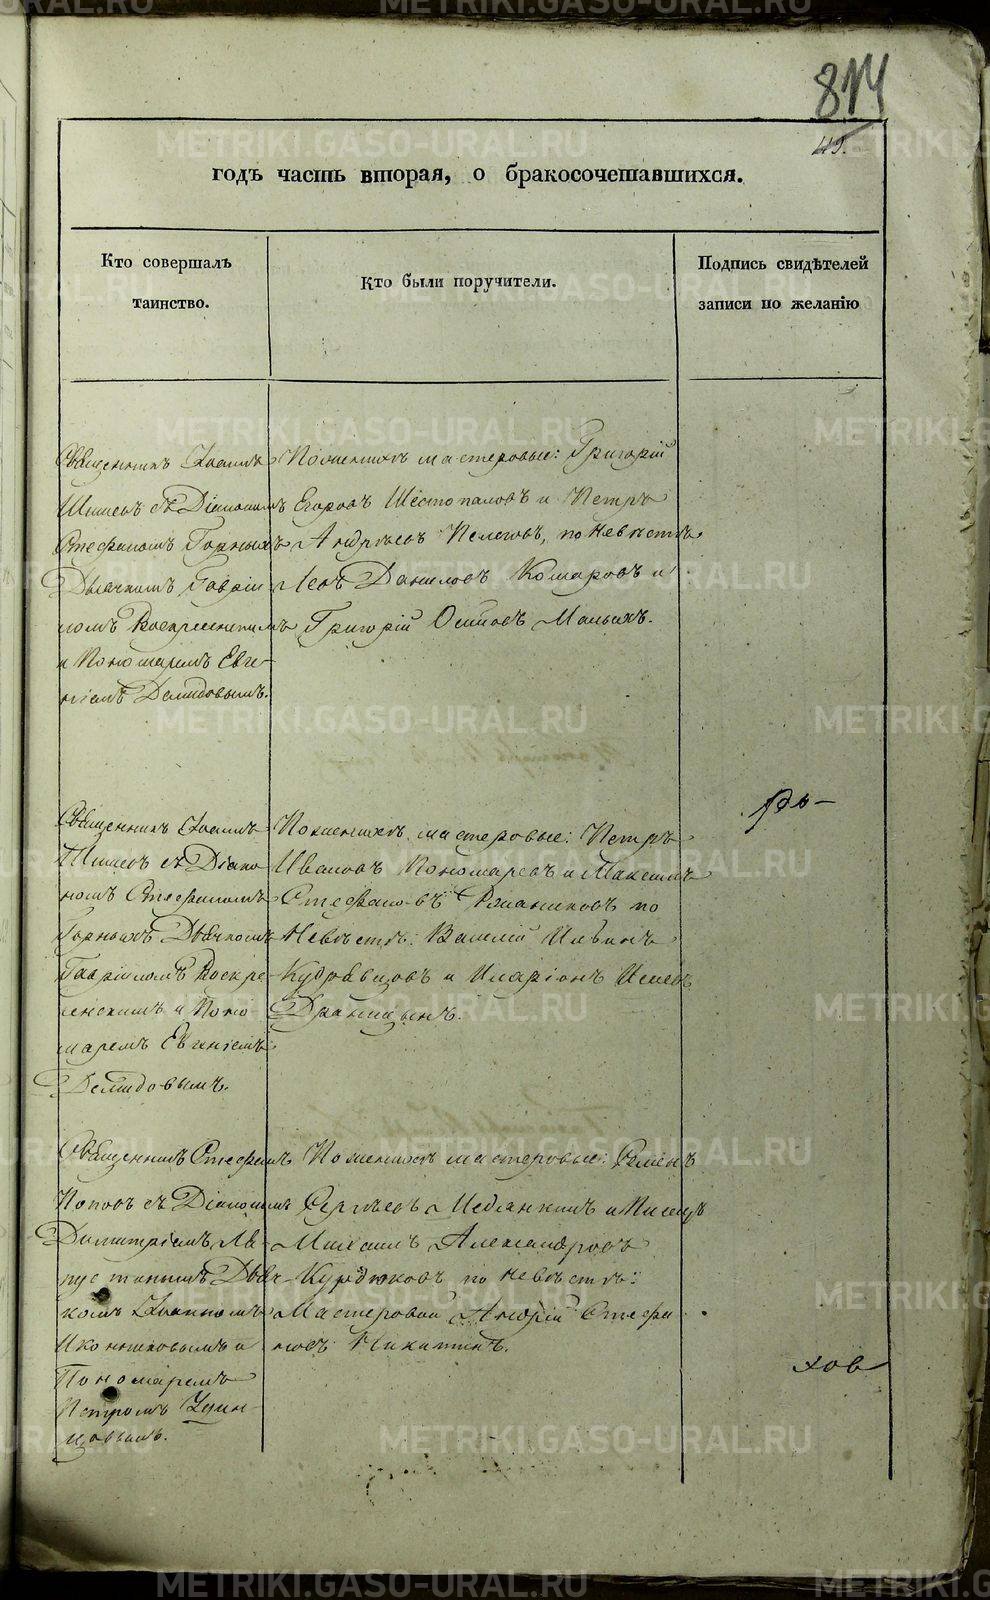 814
49.
годъ часть вторая, о бракосочетавшихся.
Кто совершалъ
таинство.
Кто были поручители.
Подпись свидѣтелей
записи по желанію
Священникъ Іоаннъ
Шишевъ съ Діакономъ
Стефаномъ Горныхъ
Дьячкомъ Гавріи-
ломъ Воскресенскимъ
и Пономаремъ Евге-
ніемъ Демидовымъ.
Поженихѣ мастеровые: Григорій
Егоровъ Шестопаловъ и Петръ
Андрѣевъ Пелеговъ, по Невѣстѣ
Левъ Даниловъ Комаровъ и
Григорій Осиповъ Малыхъ.
Священникъ Іоаннъ
Шишевъ съ Діако-
номъ Стефаномъ
Горныхъ Дьячкомъ
Гавріиломъ Воскре-
сенскимъ и Поно-
маремъ Евгеніемъ
Демидовымъ.
Поженихѣ мастеровые: Петръ
Ивановъ Пономаревъ и Максимъ
Стефановъ по
Невѣстѣ: Василій Ильинъ
Кудрявцовъ и Иларіонъ
Драницынъ.
рь-
Священникъ Стефанъ
Поповъ съ Діакономъ
Димитріемъ Ла-
пустинымъ Дьяч-
комъ Іоанномъ
Иконниковымъ и
Пономаремъ
Петромъ Удин-
цовымъ.
Поженихѣ мастеровые: Семенъ
Сергѣевъ Медянкинъ и Писецъ
Михаилъ Александровъ
Курдюковъ по невѣстѣ:
Мастеровой Андрій Стефа
новъ Никитинъ.
ховъ
METRIKI.GASO-URAL.RU